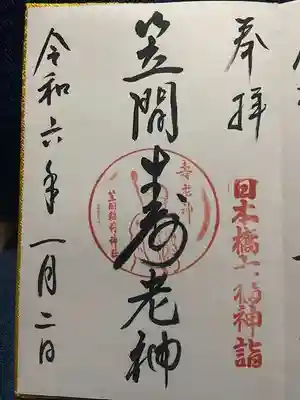 奉拝
日本橋七福神詣
笠間寿老神
寿老神
笠間稲荷神社
令和六年一月二日